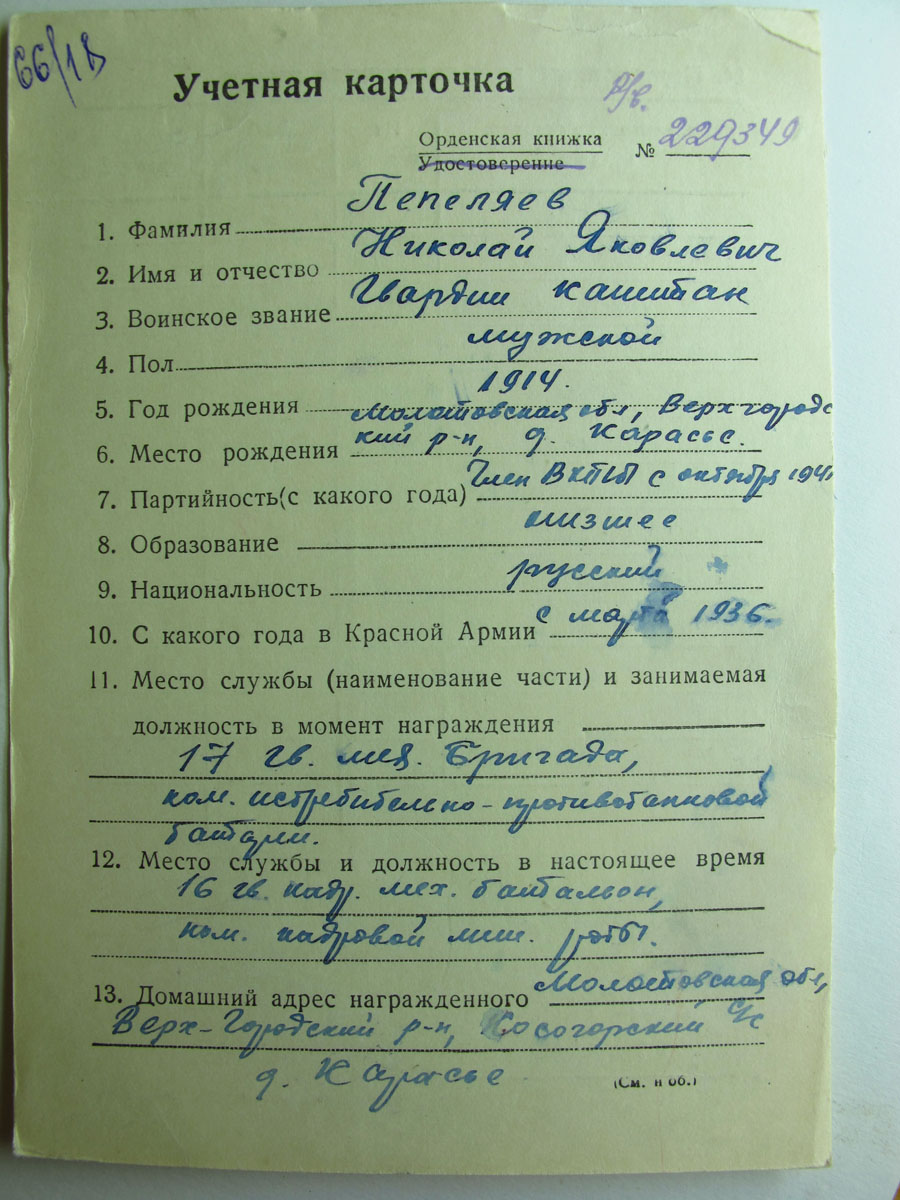 66/18
Учетная карточка
Орденская книжка
Удостоверение
№ 229349
Пепеляев
1. Фамилия
Николай Яковлевич
2. Имя и отчество
Гвардии капитан
3. Воинское звание
мужской
4. Пол
1914.
5. Год рождения
Молотовская обл, Верхгородс
кий р-н, д. Карасье.
6. Место рождения
Член ВКП(б) с октября 194
7. Партийность(с какого года)
низшее
8. Образование
русский
9. Национальность
с марта 1936.
10. С какого года в Красной Армии
11. Место службы (наименование части) и занимаемая
должность в момент награждения
17 гв. мех. Бригада,
ком. истребительно-противотанковой
батареи.
12. Место службы и должность в настоящее время
16 гв. кадр. мех. батальон,
ком. кадровой мин. роты.
13. Домашний адрес награжденного Молотовская обл,
Верх-Городский р-н, Косогорский с/с
д. Карасье
(См. н об.)